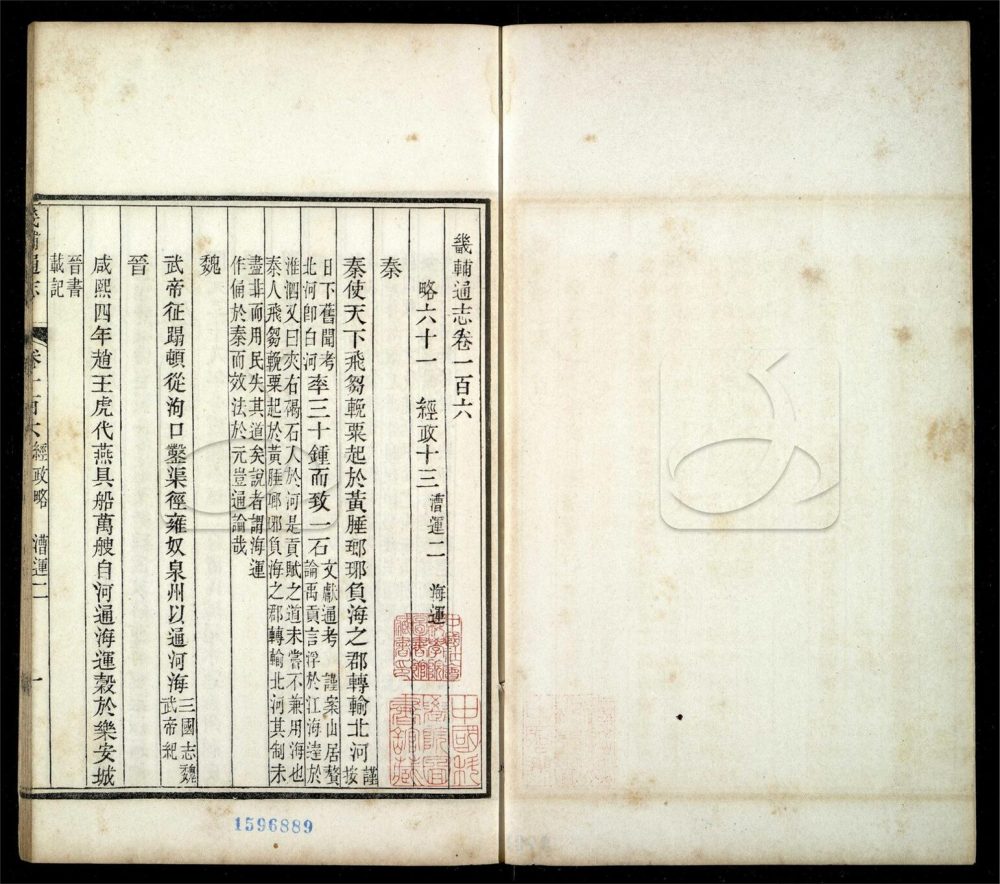 畿輔通志卷一百六
略六十一 經政十三 漕運二 海運
秦
秦使天下飛芻輓粟起於黃腄瑯琊負海之郡轉輸北河謹按
日下舊聞考北河卽白河率三十鍾而致一石文獻通考 謹案山居贅論禹貢言浮於江海逵於
淮泗又曰夾右碣石入於河是貢賦之道未嘗不兼用海也
秦人飛芻輓粟起於黃腄瑯琊負海之郡轉輸北河其制未
盡非而用民失其道矣說者謂海運
作俑於秦而效法於元豈通論哉
魏
武帝征蹋頓從泃口鑿渠徑雍奴泉州以通河海三國志魏武帝紀
晉
咸熙四年趙王虎代燕具船萬艘自河通海運穀於樂安城
晉書載記
畿輔通志 卷一百六 經政略 漕運二 一
1596889